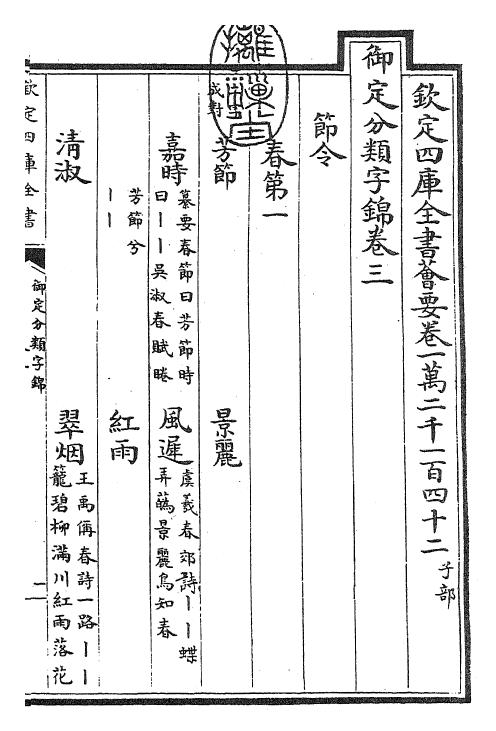 欽定四庫全書薈要卷一萬二千一百四十二 子部
御定分類字錦卷三
節令
春第一
成對
芳節 景麗
嘉時 纂要春節曰芳節時
曰丨丨吳淑春賦睠
風遲 虞羲春郊詩丨丨蝶
弄蘤景麗鳥知春
芳節兮
丨丨
紅雨
清淑 翠烟 王禹偁春詩一路丨丨
籠碧柳滿川紅雨落花
欽定四庫全書
御定分類字錦